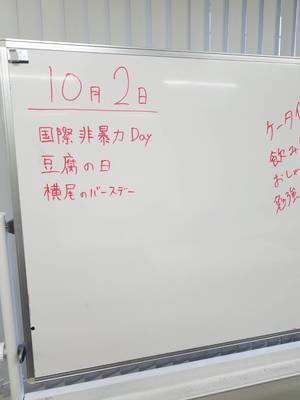 10月2日
国際非暴力Day
豆腐の日
横尾のバースデー
ケータイ
飲み
おしゃ
勉強